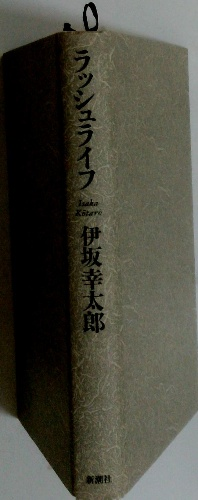 ラッシュライフ
Isaka
Kōtarō
伊坂幸太郎
新潮社